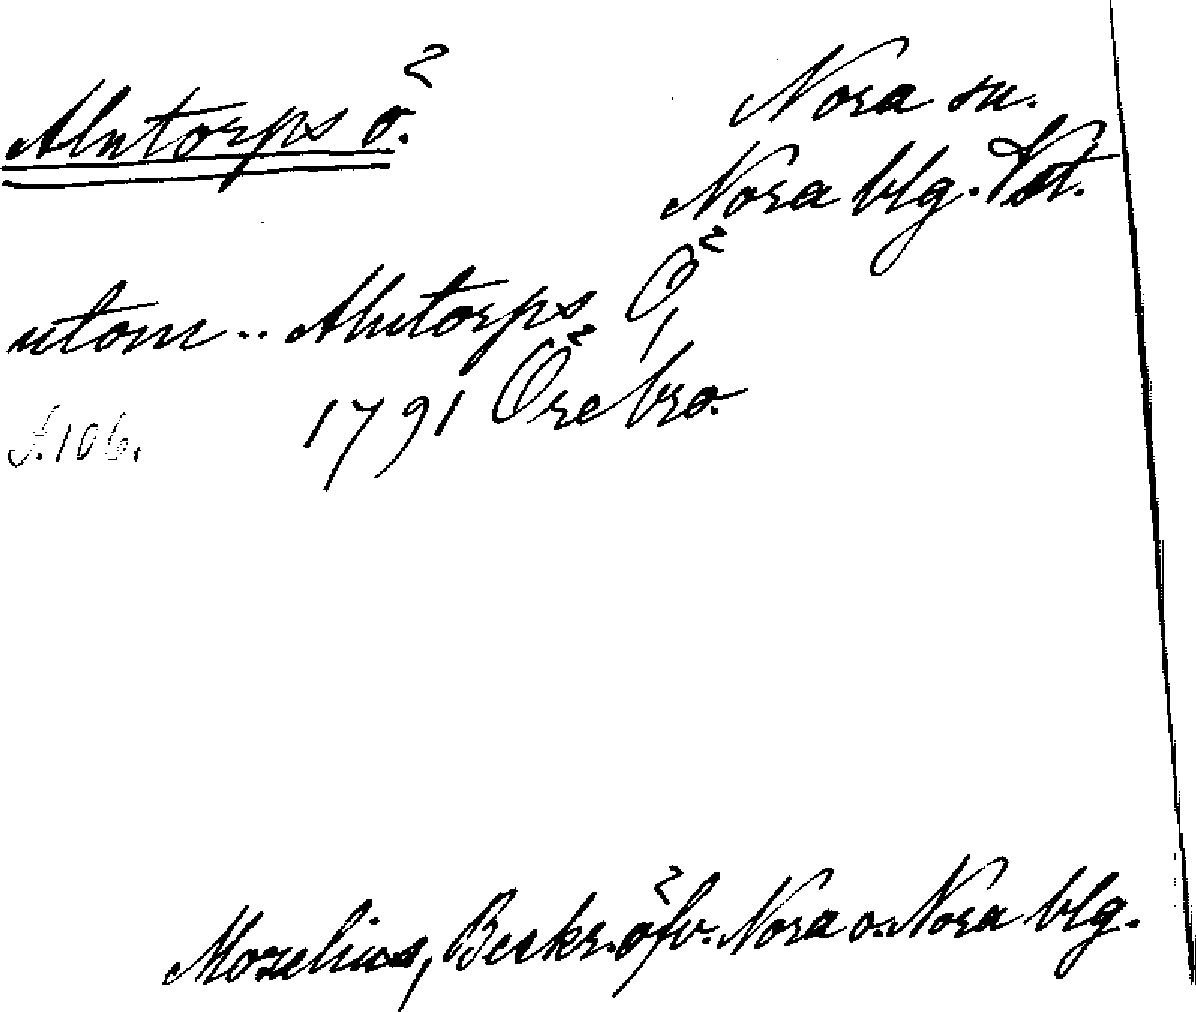 Alntorps ö.
Nora sn.
Nora blg. Vst.
utom.. Alntorps Ö,
1791 Örebro.
s. 106.
Morelius, Beskr. öfv. Nora o. Nora blg.